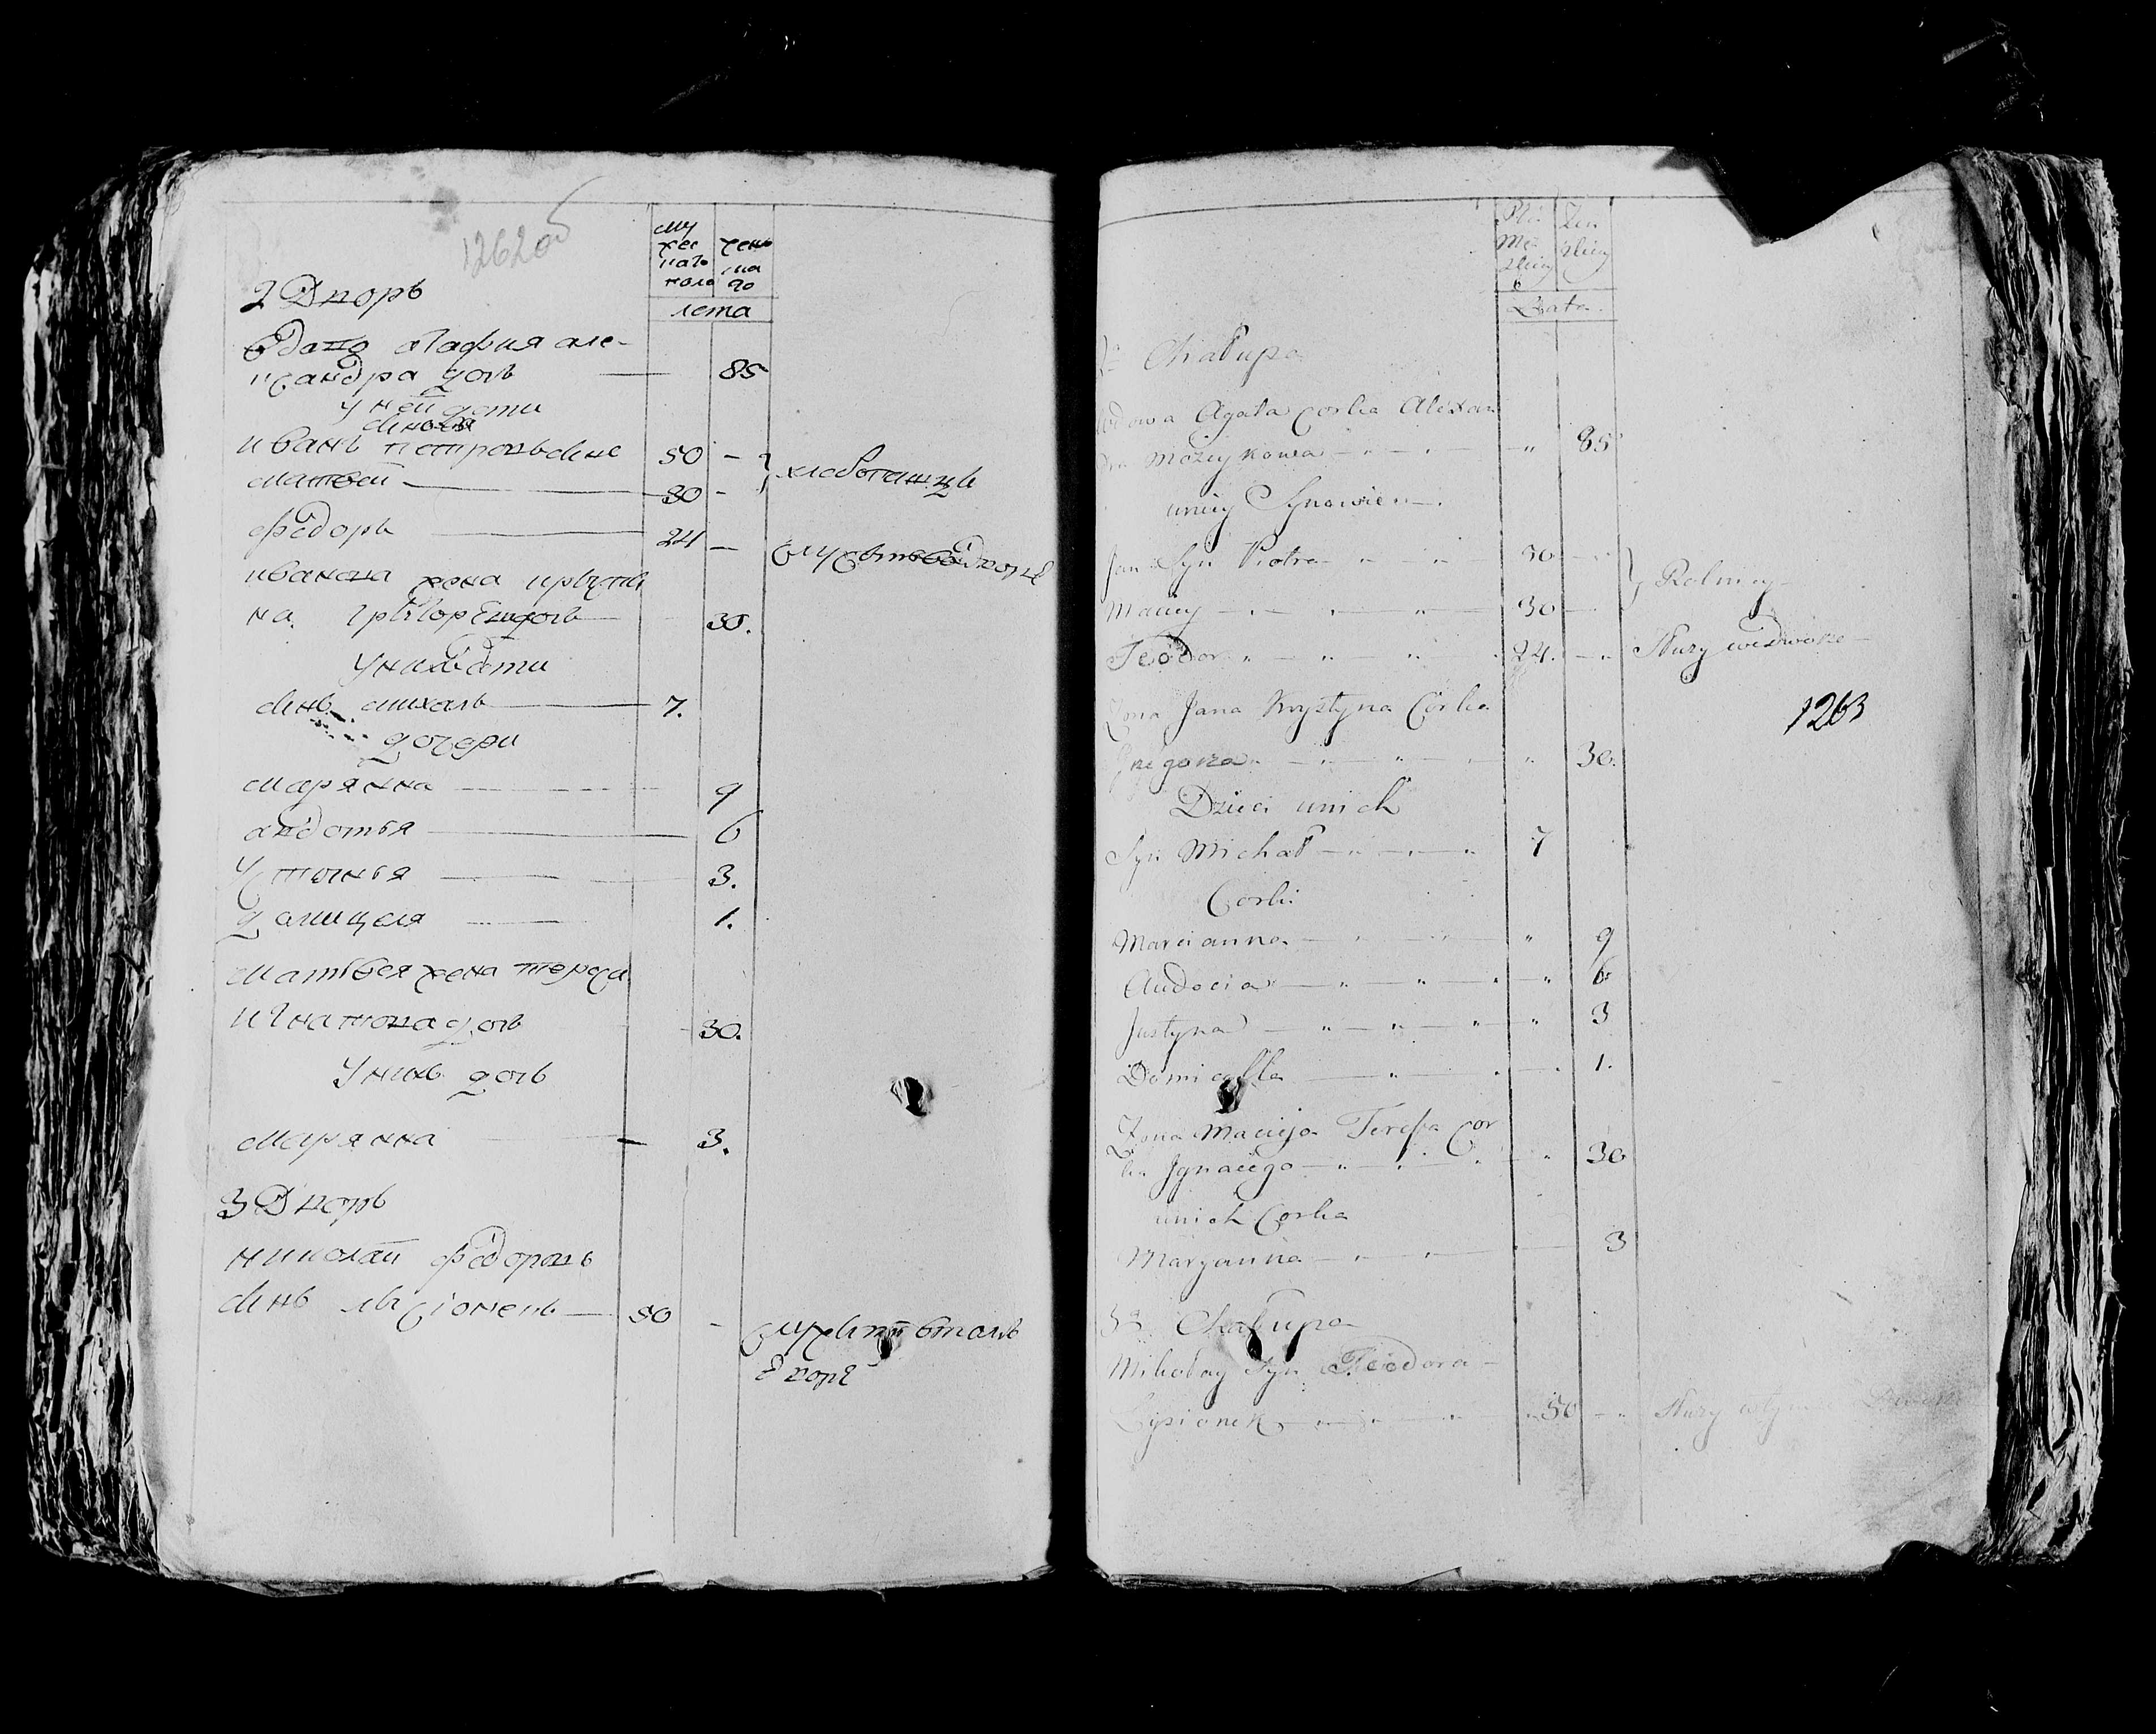 1262об
му
жес
каго
пола
жень
ска
го
лета
2 Дворъ
вдова агафия але-
ксандра дочь 85
у ней дети
синовья
иванъ петровъ синъ 50 -
матвей 30 -
хлебопашцы
федоръ 24 -
служитъ в дворе
иванова жена крысти
на григорева дочь 30.
у них дети
синъ михалъ 7.
дочери
марянна 9
авдотья 6
устинья 3.
домицеля 1.
матвея жена тереса
игнатова дочь 30.
у нихъ дочь
марянна 3.
3 Дворъ
николай федоровъ
синъ лысіонекъ 50 -
служитъ в томъ
дворе
Płci
Mę
skiey
Zen
skiey
Lata
2a Chałupa
Wdowa Agata Corka Alexan
dra Mozeykowa 85
uniey Synowie
Jan Syn Piotra 50
Maciey 30
Rolnicy
Teodor 24.
Służy we Dworze
Zona Jana Krystyna Corka
Grzegorza 30.
Dzieci unich
Syn Michał 7
Corki
Marcianna 9
Audocia 6
Justyna 3
Domicella 1.
Zona Macieja Teressa Cor
ka Jgnacego 30
unich Corka
Maryanna 3
3a Chałupa
Mikołay Syn Teodora
Łysionek 50
Służy w tym Dworze
1263